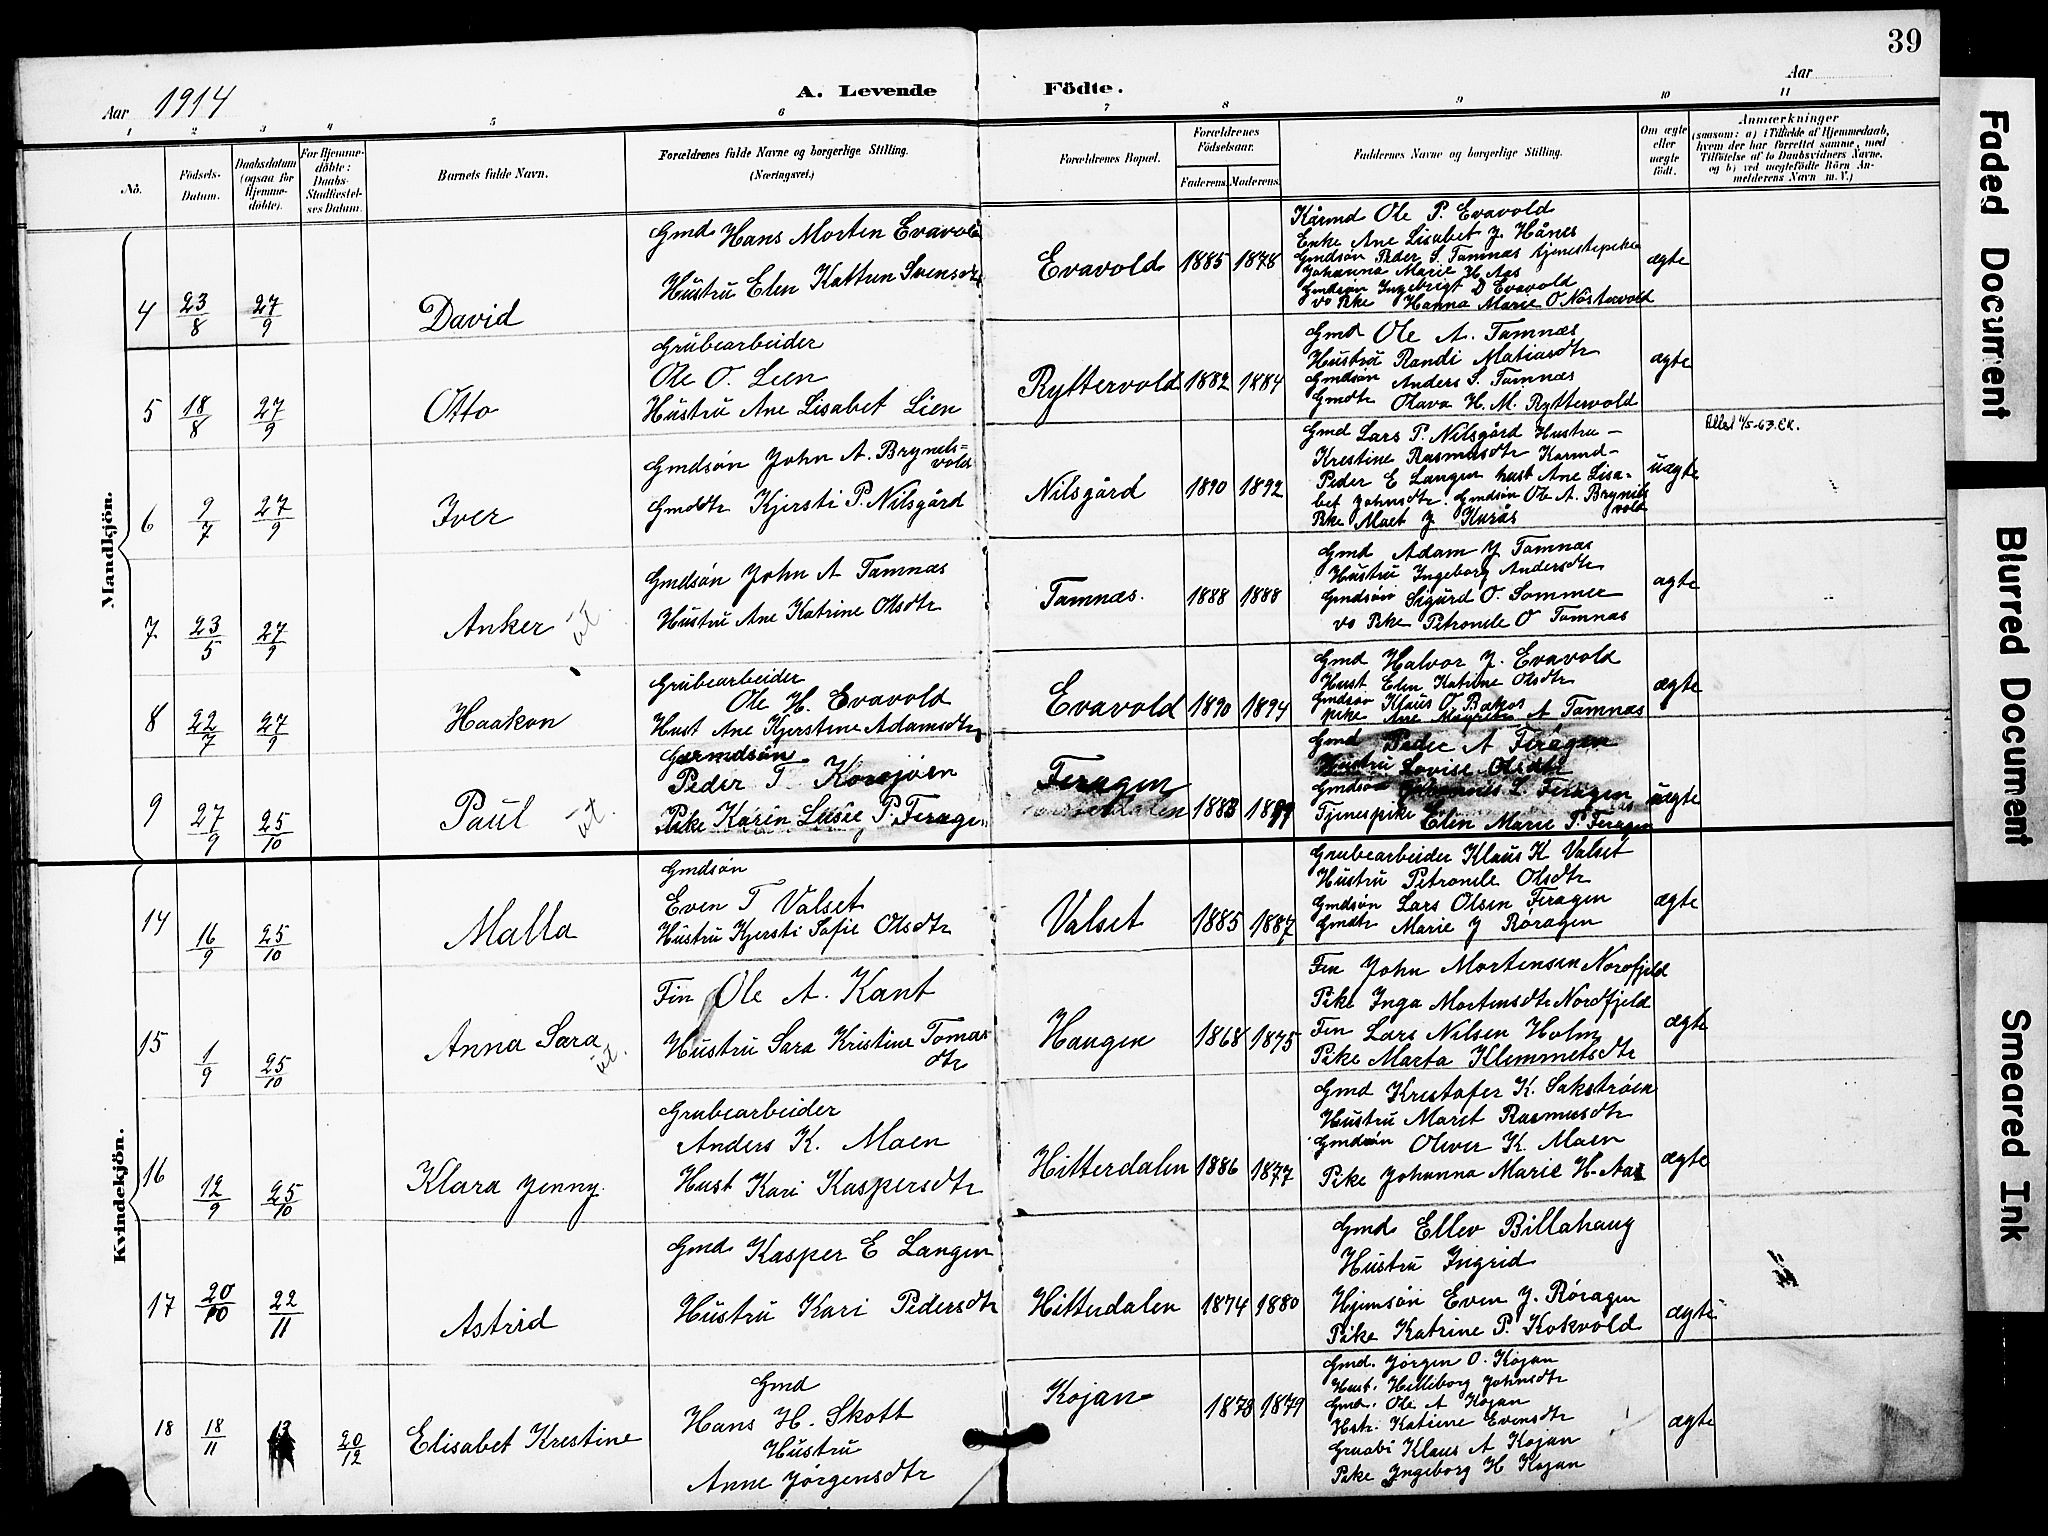 39
Aar 1914
A. Levende
Födte.
Aar
1 2 3 4 5 6 7 8 9 10 11
No.
Födsels-Datum.
Daabsdatum (ogsaa for Hjemme-döbte).
For Hjemme-döbte: Daabs-Stadfæstel-ses Datum.
Barnets fulde Navn.
Forældrenes fulde Navne og borgerlige Stilling.
(Næringsvei.)
Forældrenes Bopæl.
Forældrenes Födselsaar.
Faderens. Moderens.
Faddernes Navne og borgerlige Stilling.
Om ægte eller uægte født.
Anmærkninger
(saasom: a) i Tilfælde af Hjemmedaab,
hvem der har forrettet samme, med
Tilföielse af to Daabsvidners Navne,
og b) ved uægtefödte Börn An-
melderens Navn m. V.)
Mandkjön.
4 23/8 27/9 David
Gmd Hans Morten Evavold
Hustru Elen Katrun Svensdtr
Evavold 1885 1878
Kårmd Ole P. Evavold
Enke Ane Lisabet J. Hånes
Gmdsön Peder S. Tamnæs tjenestepike
Johanna Marie H. Aas
Gmdsön Ingebrigt D Evavold
vo Pke Hanna Marie O Nöstervold
ægte
5 18/8 27/9 Otto
Grubearbeider
Ole O. Lien
Hustru Ane Lisabet Lien
Ryttervold 1882 1884
Gmd Ole A. Tamnæs
Hustru Randi Matiasdtr
Gmdsön Anders S. Tamnæs
Gmdtr Olava H. M. Ryttervold
ægte
6 9/7 27/9 Iver
Gmdsön John A. Brynels=
vold
Gmddtr Kjersti P. Nilsgård
Nilsgård 1890 1892
Gmd Lars P. Nilsgård Hustru -
Krestine Rasmusdtr Karmd-
Peder E Langen hust Ane Lisa-
bet Johnsdtr. Gmdsön Ole A. Brynils
vold
Pke Maet J Kurås
uægte
7 23/5 27/9 Anker ut.
Gmdsön John A Tamnæs
Hustru Ane Katrine Olsdtr
Tamnæs. 1888 1888
Gmd Adam J Tamnæs
Hustru Ingeborg Andersdtr
Gmdsön Sigurd O. Sommer
vo Pke Petronele O Tamnæs
ægte
8 22/7 27/9 Haakon
Grubearbeider
Ole H. Evavold
Hust Ane Kjerstine Adamsdtr
Evavold 1890 1894
Gmd Halvor J. Evavold
Hust Elen Katrine Olsdtr
Gmdsön Klaus O Bakos
pike Ane Magrete A Tamnæs
ægte
9 27/9 25/10 Paul ut.
Gårmdsön
Peder T Korsjöen
Pike Karin Lusie P. Feragen
Feragen 1888 1889
Gmd Peder A Feragen
Hustru Lovise Olsdtr
Gmdsön Johannes L Feragen
Tjenespike Elen Marie P. Feragen
uægte
Kvindekjön.
14 16/9 25/10 Malla
Gmdsön
Even T Valset
Hustru Kjersti Sofie Olsdtr
Valset 1885 1887
Grubearbeider Klaus K Valset
Hustru Petronele Olsdtr
Gmdsön Lars Olsen Feragen
Gmdtr Marie J Röragen
ægte
15 1/9 25/10 Anna Sara ut.
Fin Ole A. Kant
Hustru Sara Kristine Tomas
dtr
Haugen 1868 1875
Fin John Mortensen Nordfjeld
Pike Inga Mortensdtr Nordfjeld
Fin Lars Nilsen Holm
Pike Marta Klemmetsdtr
ægte
16 12/9 25/10 Klara Jenny.
Grubearbeider
Anders K. Moen
Hust Kari Kaspersdtr
Hitterdalen 1886 1877
Gmd Krestofer K. Sakströen
Hustru Maret Rasmusdtr
Gmdsön Oliver K. Moen
Pike Johanna Marie H. Aas
ægte
17 20/10 22/11 Astrid
Gmd Kasper E Langen
Hustru Kari Pedersdtr
Hitterdalen 1874 1880
Gmd Ellev Billahaug
Hustru Ingrid
Hjemsön Even J. Röragen
Pike Katrine P. Kokvold
ægte
18 18/11 20/12 Elisabet Krestine
Gmd
Hans H. Skott
Hustru
Anne Jörgensdtr
Kojan 1873 1879
Gmd. Jörgen O. Kojan
Hust. Helleborg Johnsdtr
Gmd. Ole A Kojan
Hstr. Katrine Evensdtr
Gruabi Klaus A Kojan
Pike Ingeborg H Kojan
ægte
Faded Document
Blurred Document
Smeared Ink